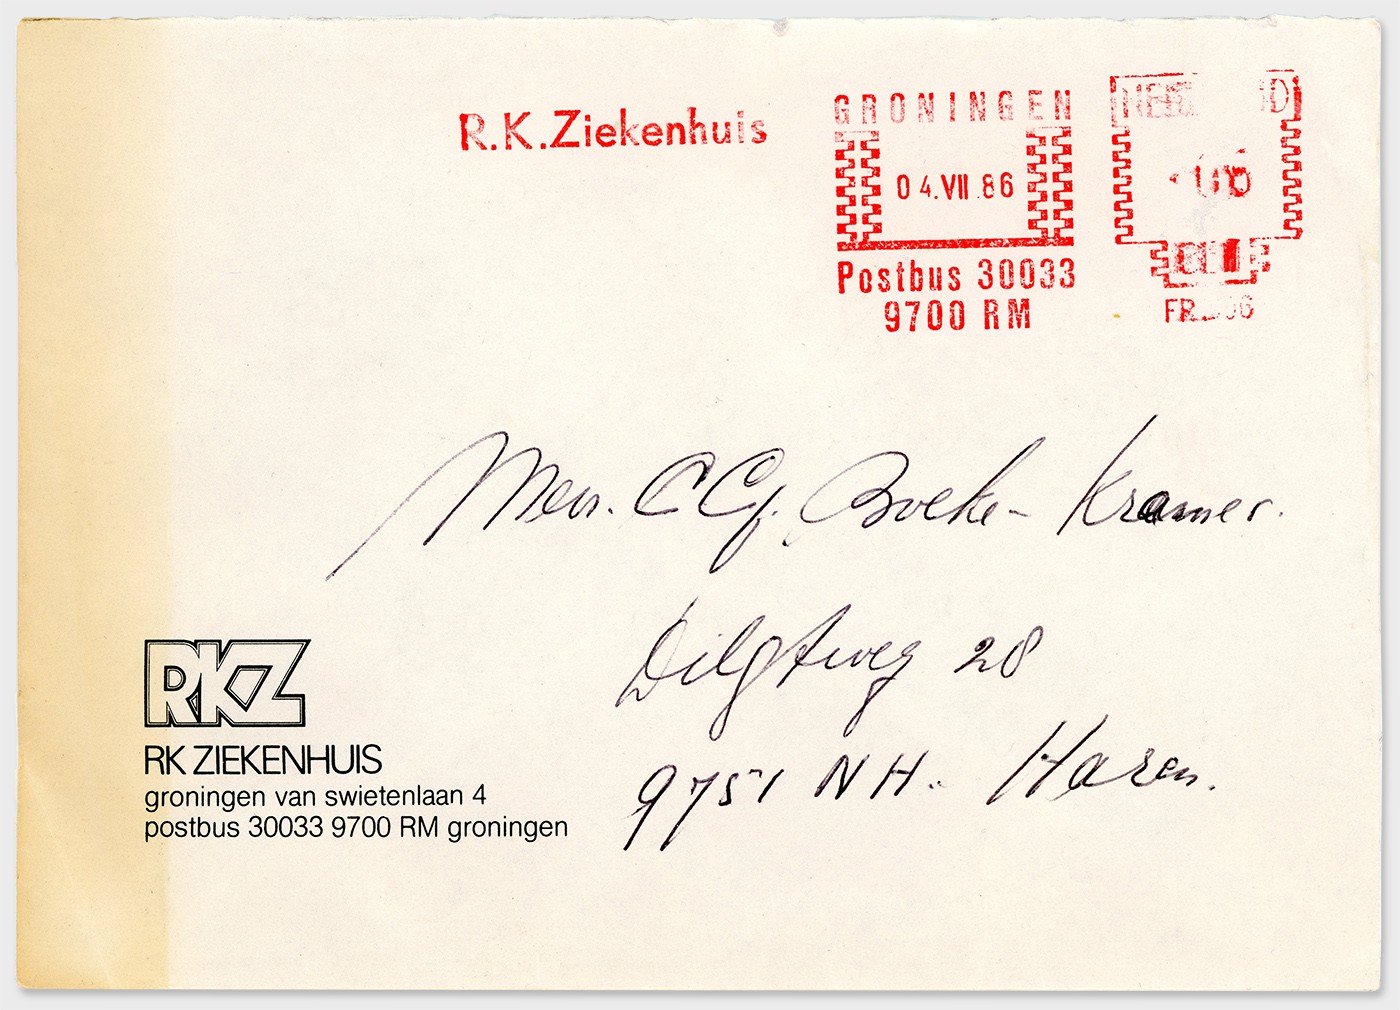 R.K.Ziekenhuis
GRONINGEN
04.VII.86
Postbus 30033
9700 RM
Mevr. C C J. Boeke-Kramer.
Dilgtweg 28
9751 NH. Haren.
RKZ
RK ZIEKENHUIS
groningen van swietenlaan 4
postbus 30033 9700 RM groningen